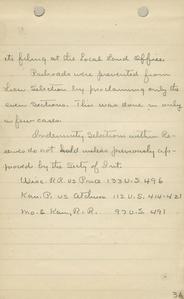 its filing at the Local Land Office.
Railroads were prevented from
Lieu Selection by proclaiming only the
even Sections. This was done in only
a few cases.
Indemnity Selections within Re-
serves do not hold unless previously ap-
proved by the Secty of Int.
Wisc. RR. vs Price 133 U.S. 496
Kan. P. vs Atchison 112 U.S. 414-421
Mo. & Kan. R.R. 97 U.S. 491
36